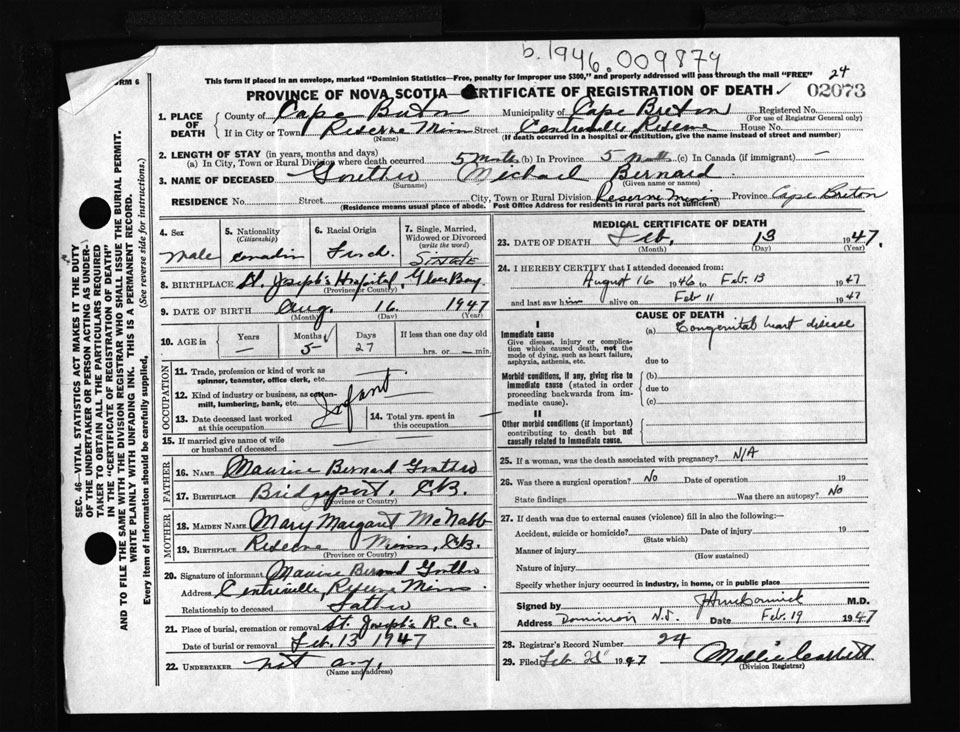 b.1946.009879
FORM 6
This form if placed in an envelope, marked "Dominion Statistics—Free, penalty for improper use $300," and properly addressed will pass through the mail "FREE"
24
PROVINCE OF NOVA SCOTIA—CERTIFICATE OF REGISTRATION OF DEATH ✓ 02073
1. PLACE OF DEATH { County of Cape Breton Municipality of Cape Breton Registered No.
(For use of Registrar General only)
If in City or Town Reserve Mines Street Centreville Reserve House No.
(Name) (If death occurred in a hospital or institution, give the name instead of street and number)
2. LENGTH OF STAY (in years, months and days)
(a) In City, Town or Rural Division where death occurred 5 mnts (b) In Province 5 (c) In Canada (if immigrant) —
3. NAME OF DECEASED Gouthro Michael Bernard
(Surname) (Given name or names)
RESIDENCE No. Street City, Town or Rural Division Reserve Mines Province Cape Breton
(Residence means usual place of abode. Post Office Address for residents in rural parts not sufficient)
4. Sex
male
5. Nationality
(Citizenship)
6. Racial Origin
7. Single, Married,
Widowed or Divorced
(write the word)
SINGLE
8. BIRTHPLACE St. Joseph's Hospital, Glace Bay
(Province or Country)
9. DATE OF BIRTH Aug. 16 1947
(Month) (Day) (Year)
10. AGE in
Years
—
Months
5
Days
27
If less than one day old
hrs. or — min
OCCUPATION
11. Trade, profession or kind of work as
spinner, teamster, office clerk, etc.
12. Kind of industry or business, as cotton-
mill, lumbering, bank, etc.
Infant
13. Date deceased last worked
at this occupation
14. Total yrs. spent in
this occupation —
15. If married give name of wife
or husband of deceased
FATHER
16. NAME Maurice Bernard Gouthro
17. BIRTHPLACE Bridgeport C.B.
(Province or Country)
MOTHER
18. MAIDEN NAME Mary Margaret McNabb
19. BIRTHPLACE Reserve Mines, C.B.
(Province or Country)
20. Signature of informant Maurice Bernard Gouthro
Address Centreville, Reserve Mines
Relationship to deceased Father
21. Place of burial, cremation or removal St. Joseph's R.C.C.
Date of burial or removal Feb. 13 1947
22. UNDERTAKER not any.
(Name and address)
MEDICAL CERTIFICATE OF DEATH
23. DATE OF DEATH Feb. 13 1947.
(Month) (Day) (Year)
24. I HEREBY CERTIFY that I attended deceased from:
August 16 1946 to Feb. 13 1947
and last saw him alive on Feb 11 1947
CAUSE OF DEATH
I
Immediate cause
Give disease, injury or complica-
tion which caused death, not the
mode of dying, such as heart failure,
asphyxia, asthenia, etc.
(a) Congenital heart disease
due to
Morbid conditions, if any, giving rise to
immediate cause (stated in order
proceeding backwards from im-
mediate cause).
(b)
due to
(c)
II
Other morbid conditions (if important)
contributing to death but not
causally related to immediate cause.
25. If a woman, was the death associated with pregnancy? N/A
26. Was there a surgical operation? No Date of operation 19
State findings Was there an autopsy? No
27. If death was due to external causes (violence) fill in also the following:—
Accident, suicide or homicide? Date of injury 19
(State which)
Manner of injury
(How sustained)
Nature of injury
Specify whether injury occurred in industry, in home, or in public place
Signed by M.D.
Address Dominion N.S. Date Feb. 19 1947
28. Registrar's Record Number 24
29. Filed Feb 1947
(Division Registrar)
SEC. 46—VITAL STATISTICS ACT MAKES IT THE DUTY
OF THE UNDERTAKER OR PERSON ACTING AS UNDER-
TAKER TO OBTAIN ALL THE PARTICULARS REQUIRED
IN THE "CERTIFICATE OF REGISTRATION OF DEATH"
AND TO FILE THE SAME WITH THE DIVISION REGISTRAR WHO SHALL ISSUE THE BURIAL PERMIT.
WRITE PLAINLY WITH UNFADING INK. THIS IS A PERMANENT RECORD.
Every item of information should be carefully supplied. (See reverse side for instructions.)